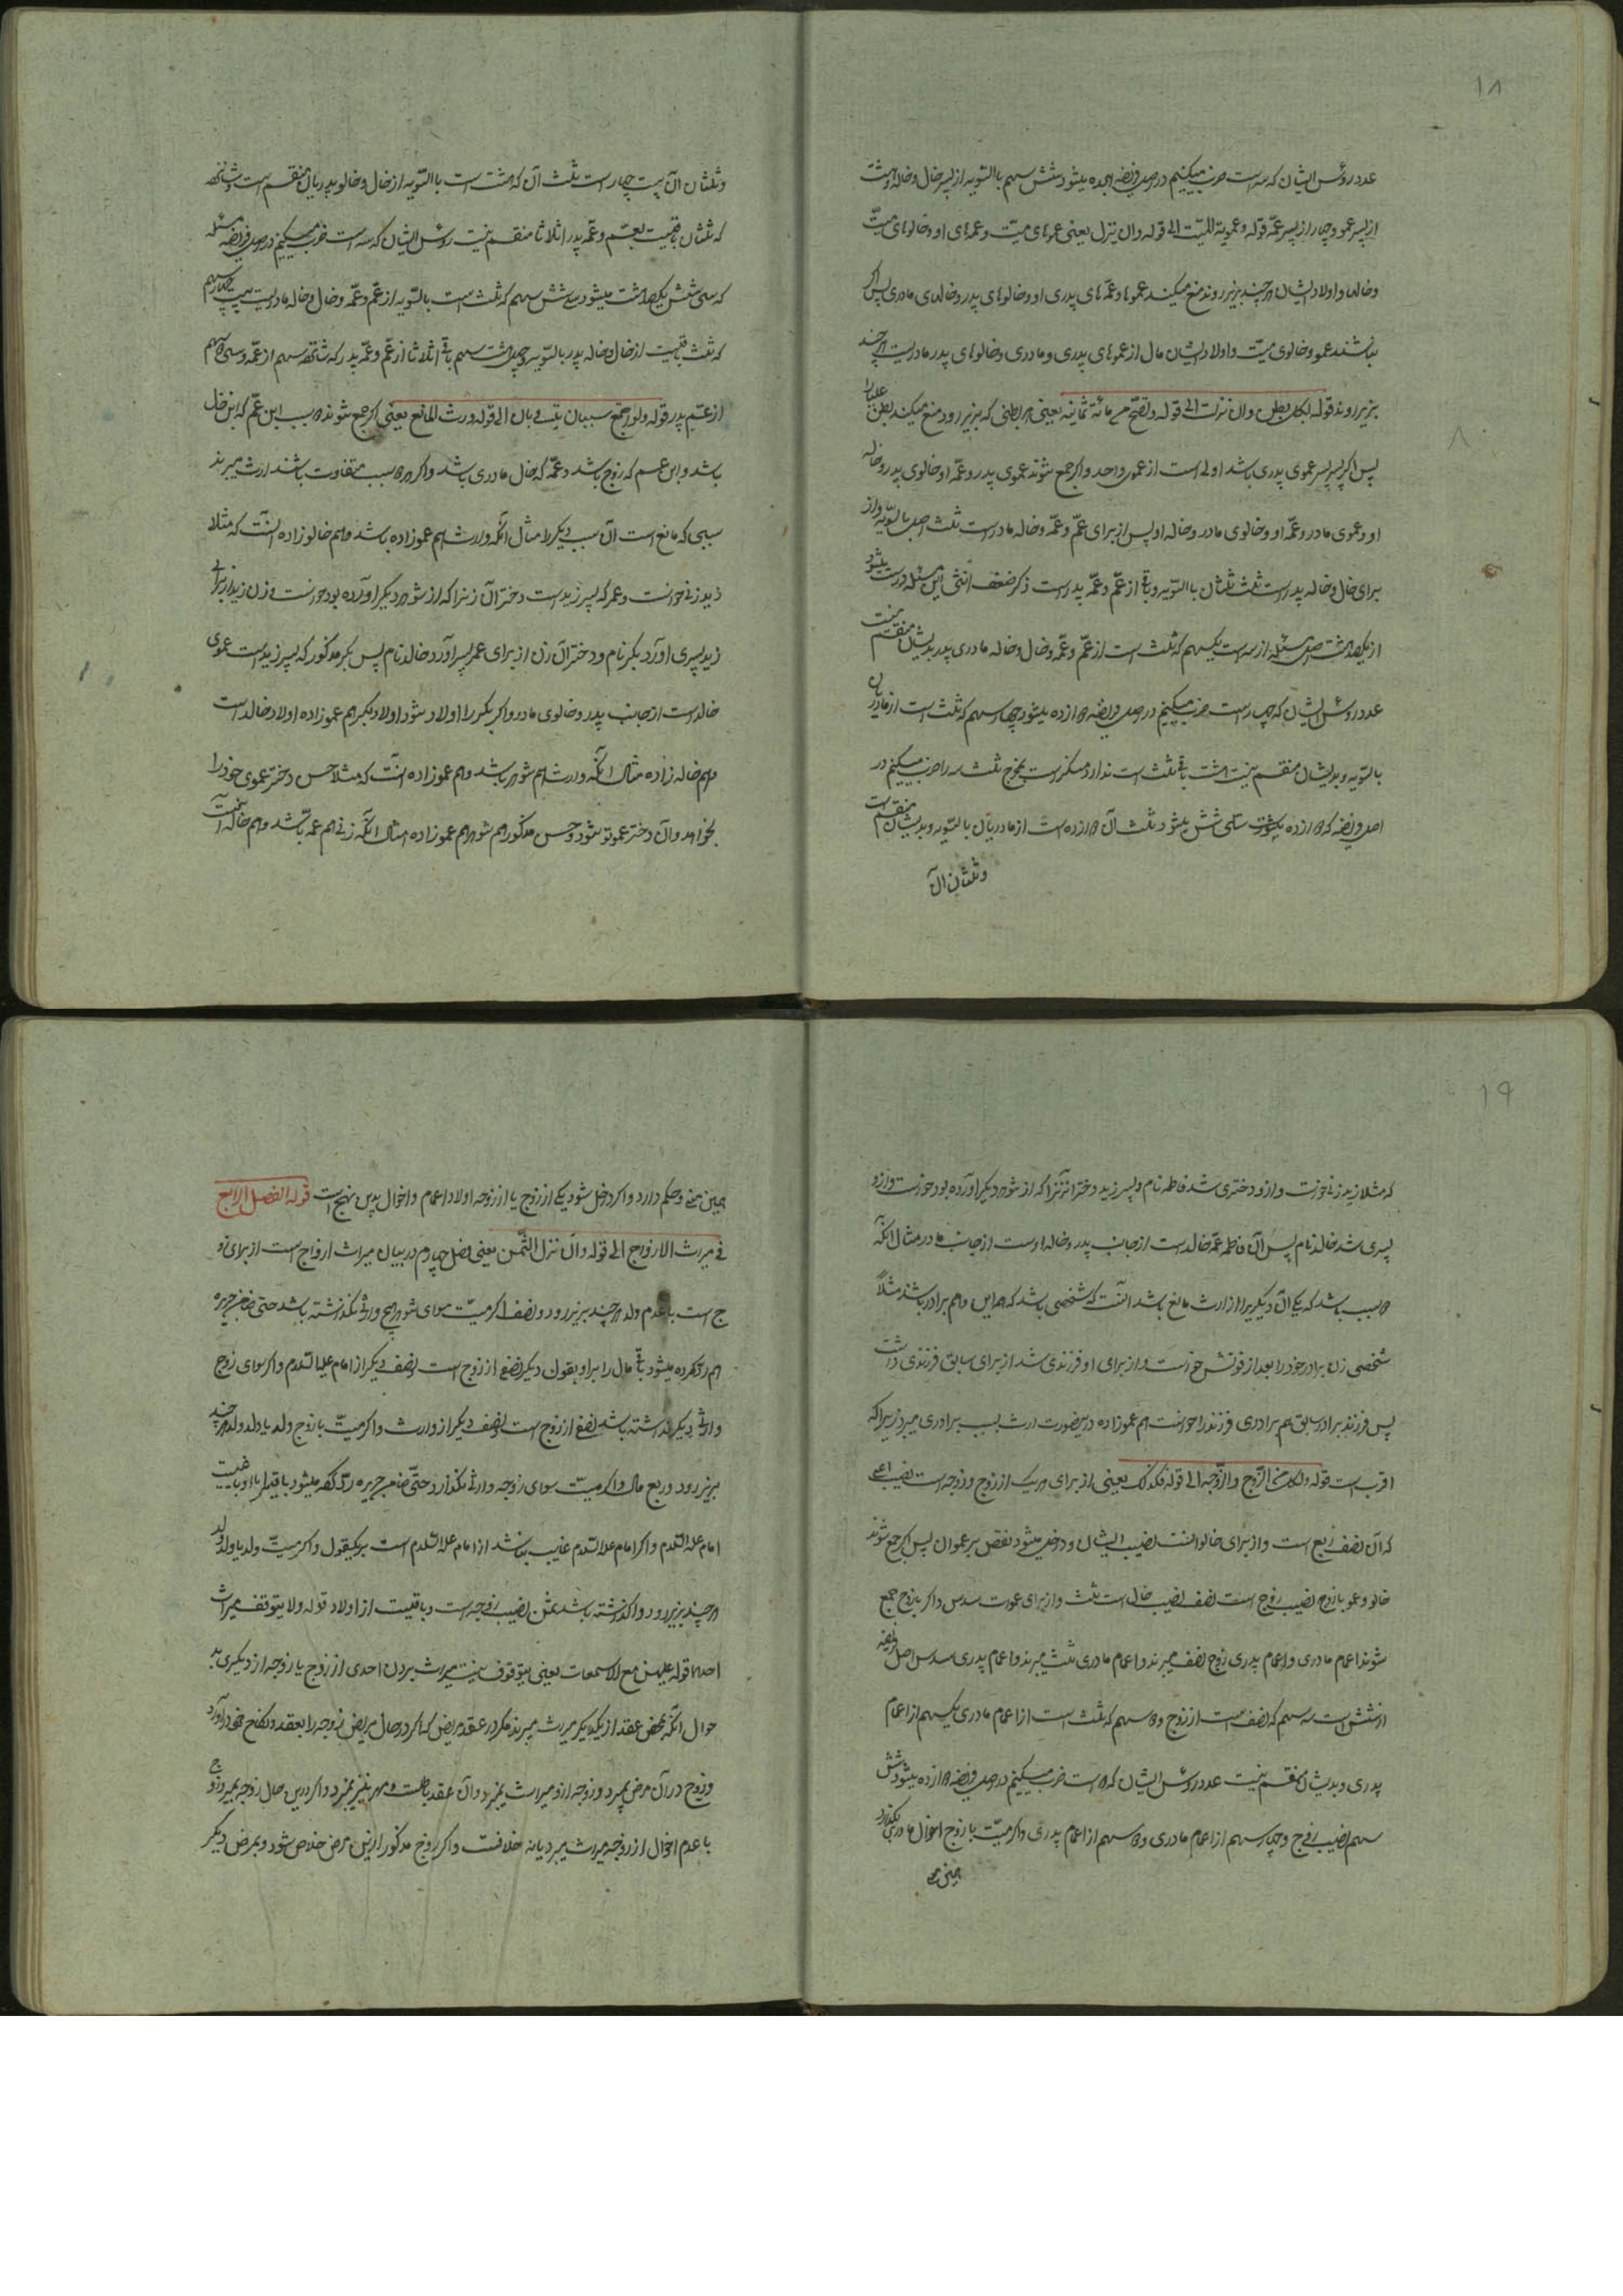 ۱۸
عدد روس ایشان که سه است ضرب میکنیم در اصل فریضه هجده میشود شش سهم بالتسویه از پسر خال و خاله و هشت
از پسر عمو و چهار از پسر عمه قوله و عمومة المیت الی قوله وان نزل یعنی عموهای میت و عمه‌های او و خالوهای میت
و خالها و اولاد ایشان هر چند بزیر روند منع میکنند عموها و عمه‌های پدری او و خالوهای پدر و خالهای مادری پس اگر
نباشند عمو و خالوی میت و اولاد ایشان مال از عموهای پدری و مادری و خالوهای پدر مادریست هر چند
بزیر روند قوله لکل بطن وان نزلت الی قوله و تصح من مائة ثمانیه یعنی هر بطنی که بزیر رود منع میکند بطن علیا را
پس اگر پسر پسر عموی پدری باشد اولی است از عموی واحد و اگر جمع شوند عموی پدر و عمه او خالوی پدر و خاله
او و عموی مادر و عمه او و خالوی مادر و خاله او پس از برای عم و عمه و خاله مادر است ثلث اصل بالتسویه و از
برای خال و خاله پدر است ثلث ثلثان بالتسویه و باقی از عم و عمه پدر است ذکر ضعف انثی این مسئله درست میشود
از یکصد هشت اصل مسئله از سه است یکسهم که ثلث است از عم و عمه و خال و خاله مادری پدر بدیشان منقسم نیست
عدد روس ایشان که چهار است ضرب میکنیم در اصل فریضه دوازده میشود چهار سهم که ثلث است از مادریان
بالتسویه و بدیشان منقسم نیست هشت باقی ثلث است ندارد منکسر است مخرج ثلث سه را ضرب میکنیم در
اصل فریضه که دوازده میشود سی شش میشود ثلث آن دوازده است از مادریان بالتسویه و بدیشان منقسم است
و ثلثان آن
و ثلثان آن بیست چهار است ثلث آن که هشت است بالتسویه از خال و خالو پدریان منقسم است و شانزده
که ثلثان باقیست بعم و عمه پدر اثلاثا منقسم نیست روس ایشان که سه است ضرب میکنیم در اصل فریضه مسئله
که سی شش یکصد هشت میشود سی شش سهم که ثلث است بالتسویه از عم و عمه و خال و خاله مادریست بیست چهار سهم
که ثلث باقیست از خال و خاله پدر بالتسویه و چهل هشت سهم باقی اثلاثا از عم و عمه پدر که شانزده سهم از عمه و سی دو سهم
از عم پدر قوله ولو اجتمع سببان الی قوله ورث المانع یعنی اگر جمع شوند دو سبب ابن عم که ابن خال
باشد و ابن عم که زوج باشد و عمه که خال مادری باشد و اگر دو سبب متفاوت باشند ارث میبرند
سببی که مانع است آن سبب دیگر را مثال آنکه وارث هم عموزاده باشد و هم خالوزاده آنست که مثلا
زید زنی خواست و عمر که پسر زید است دختر آن زنرا که از شوهر دیگر آورده بود خواست و زن زید از برای
زید پسری آورد بکر نام و دختر آن زن از برای عمر پسر آورد خالد نام پس بکر مذکور که پسر زید است عموی
خالد است از جانب پدر و خالوی مادر و اگر بکر را اولاد شود اولاد بکر هم عموزاده اولاد خالد است
و هم خاله زاده مثال آنکه وارث هم شوهر باشد و هم عموزاده آنست که مثلا حسن دختر عموی خود را
بخواهد و آن دختر عمو فوت شود و حسن مذکور هم شوهر هم عموزاده مثال آنکه زنی هم عمه باشد و هم خاله آنست
۱۹
که مثلا زید زنی خواست و ازو دختری شد فاطمه نام و پسر زید دختر آنزنرا که از شوهر دیگر آورده بود خواست و ازو
پسری شد خالد نام پس آن فاطمه عمه خالد است از جانب پدر و خاله اوست از جانب مادر مثال آنکه
دو سبب باشد که یکی آن دیگریرا از ارث مانع باشد آنست که شخصی باشد که هم ابن و هم برادر باشد مثلا
شخصی زن برادر خود را بعد از فوتش خواست و از برای او فرزندی شد از برای سابق فرزندی داشت
پس فرزند برادر سابق هم برادری فرزند را خواست هم عموزاده درینصورت ارث بسبب برادری میبرد زیرا که
اقرب است قوله ولکل من الزوج والزوجه الی قوله فکذلک یعنی از برای هر یک از زوج و زوجه است نصیب اعلی
که آن نصف ربع است و از برای خالوانست نصیب ایشان و داخل میشود نقص بر عموان پس اگر جمع شوند
خالو و عمو با زوج نصیب زوج است نصف نصیب خال است ثلث و از برای عموست سدس و اگر با زوج جمع
شوند اعمام مادری و اعمام پدری زوج نصف میبرند و اعمام مادری ثلث میبرند و اعمام پدری سدس اصل فریضه
از شش است سه سهم که نصف است از زوج و دو سهم که ثلث است از اعمام مادری یکسهم از اعمام
پدری و بدیشان منقسم نیست عدد روس ایشان که دو است ضرب میکنیم در اصل فریضه دوازده میشود شش
سهم نصیب زوج و چهار سهم از اعمام مادری و دو سهم از اعمام پدری و اگر میت با زوج اخوال مادری بگذارد
همین معنی
همین معنی و حکم دارد و اگر داخل شود یکی از زوج یا از زوجه اولاد اعمام و اخوال بدین نهج است قوله الفصل الرابع
فی میراث الازواج الی قوله وان نزل الثمن یعنی فصل چهارم در بیان میراث ازواج است از برای زو
ج است با عدم ولد هر چند بزیر رود و نصف اگر میت سوای شوهر هیچ وارثی نگذاشته باشد حتی ضامن جریره
هم رد کرده میشود باقی مال را بر او بقول دیگر نصف از زوج است نصف دیگر از امام علیه السلام و اگر سوای زوج
وارثی دیگر گذاشته باشد نصف از زوج است نصف دیگر از وارث و اگر میت با زوج ولد یا ولد ولد هر چند
بزیر رود ربع مال و اگر میت سوای زوجه وارثی نگذارد حتی ضامن جریره رد کرده میشود باقی با او با غیبت
امام علیه السلام و اگر امام علیه السلام غایب نباشد از امام علیه السلام است بر یکقول و اگر میت ولد یا ولد ولد
هر چند بزیر رود و گذاشته باشد ثمن نصیب زوجه است و باقیست از اولاد قوله ولا یتوقف میراث
احدهما قوله علیهن مع الاسمعات یعنی موقوف نیست میراث بردن احدی از زوج یا زوجه از دیگری بد
خول آنکه بمحض عقد از یکدیگر میراث میبرند مگر در عقد مریض که اگر در حال مریض زوجه را بعقد و نکاح خود درآورد
و زوج در آن مرض بمیرد و زوجه ازو میراث نمیبرد و آن عقد باطلست و مهر نیز نمیبرد و اگر درین حال زوجه بمیرد زوج
با عدم اخوال از زوجه میراث میبرد یا نه خلافست و اگر زوج مذکور ازین مرض خلاص شود و بمرض دیگر